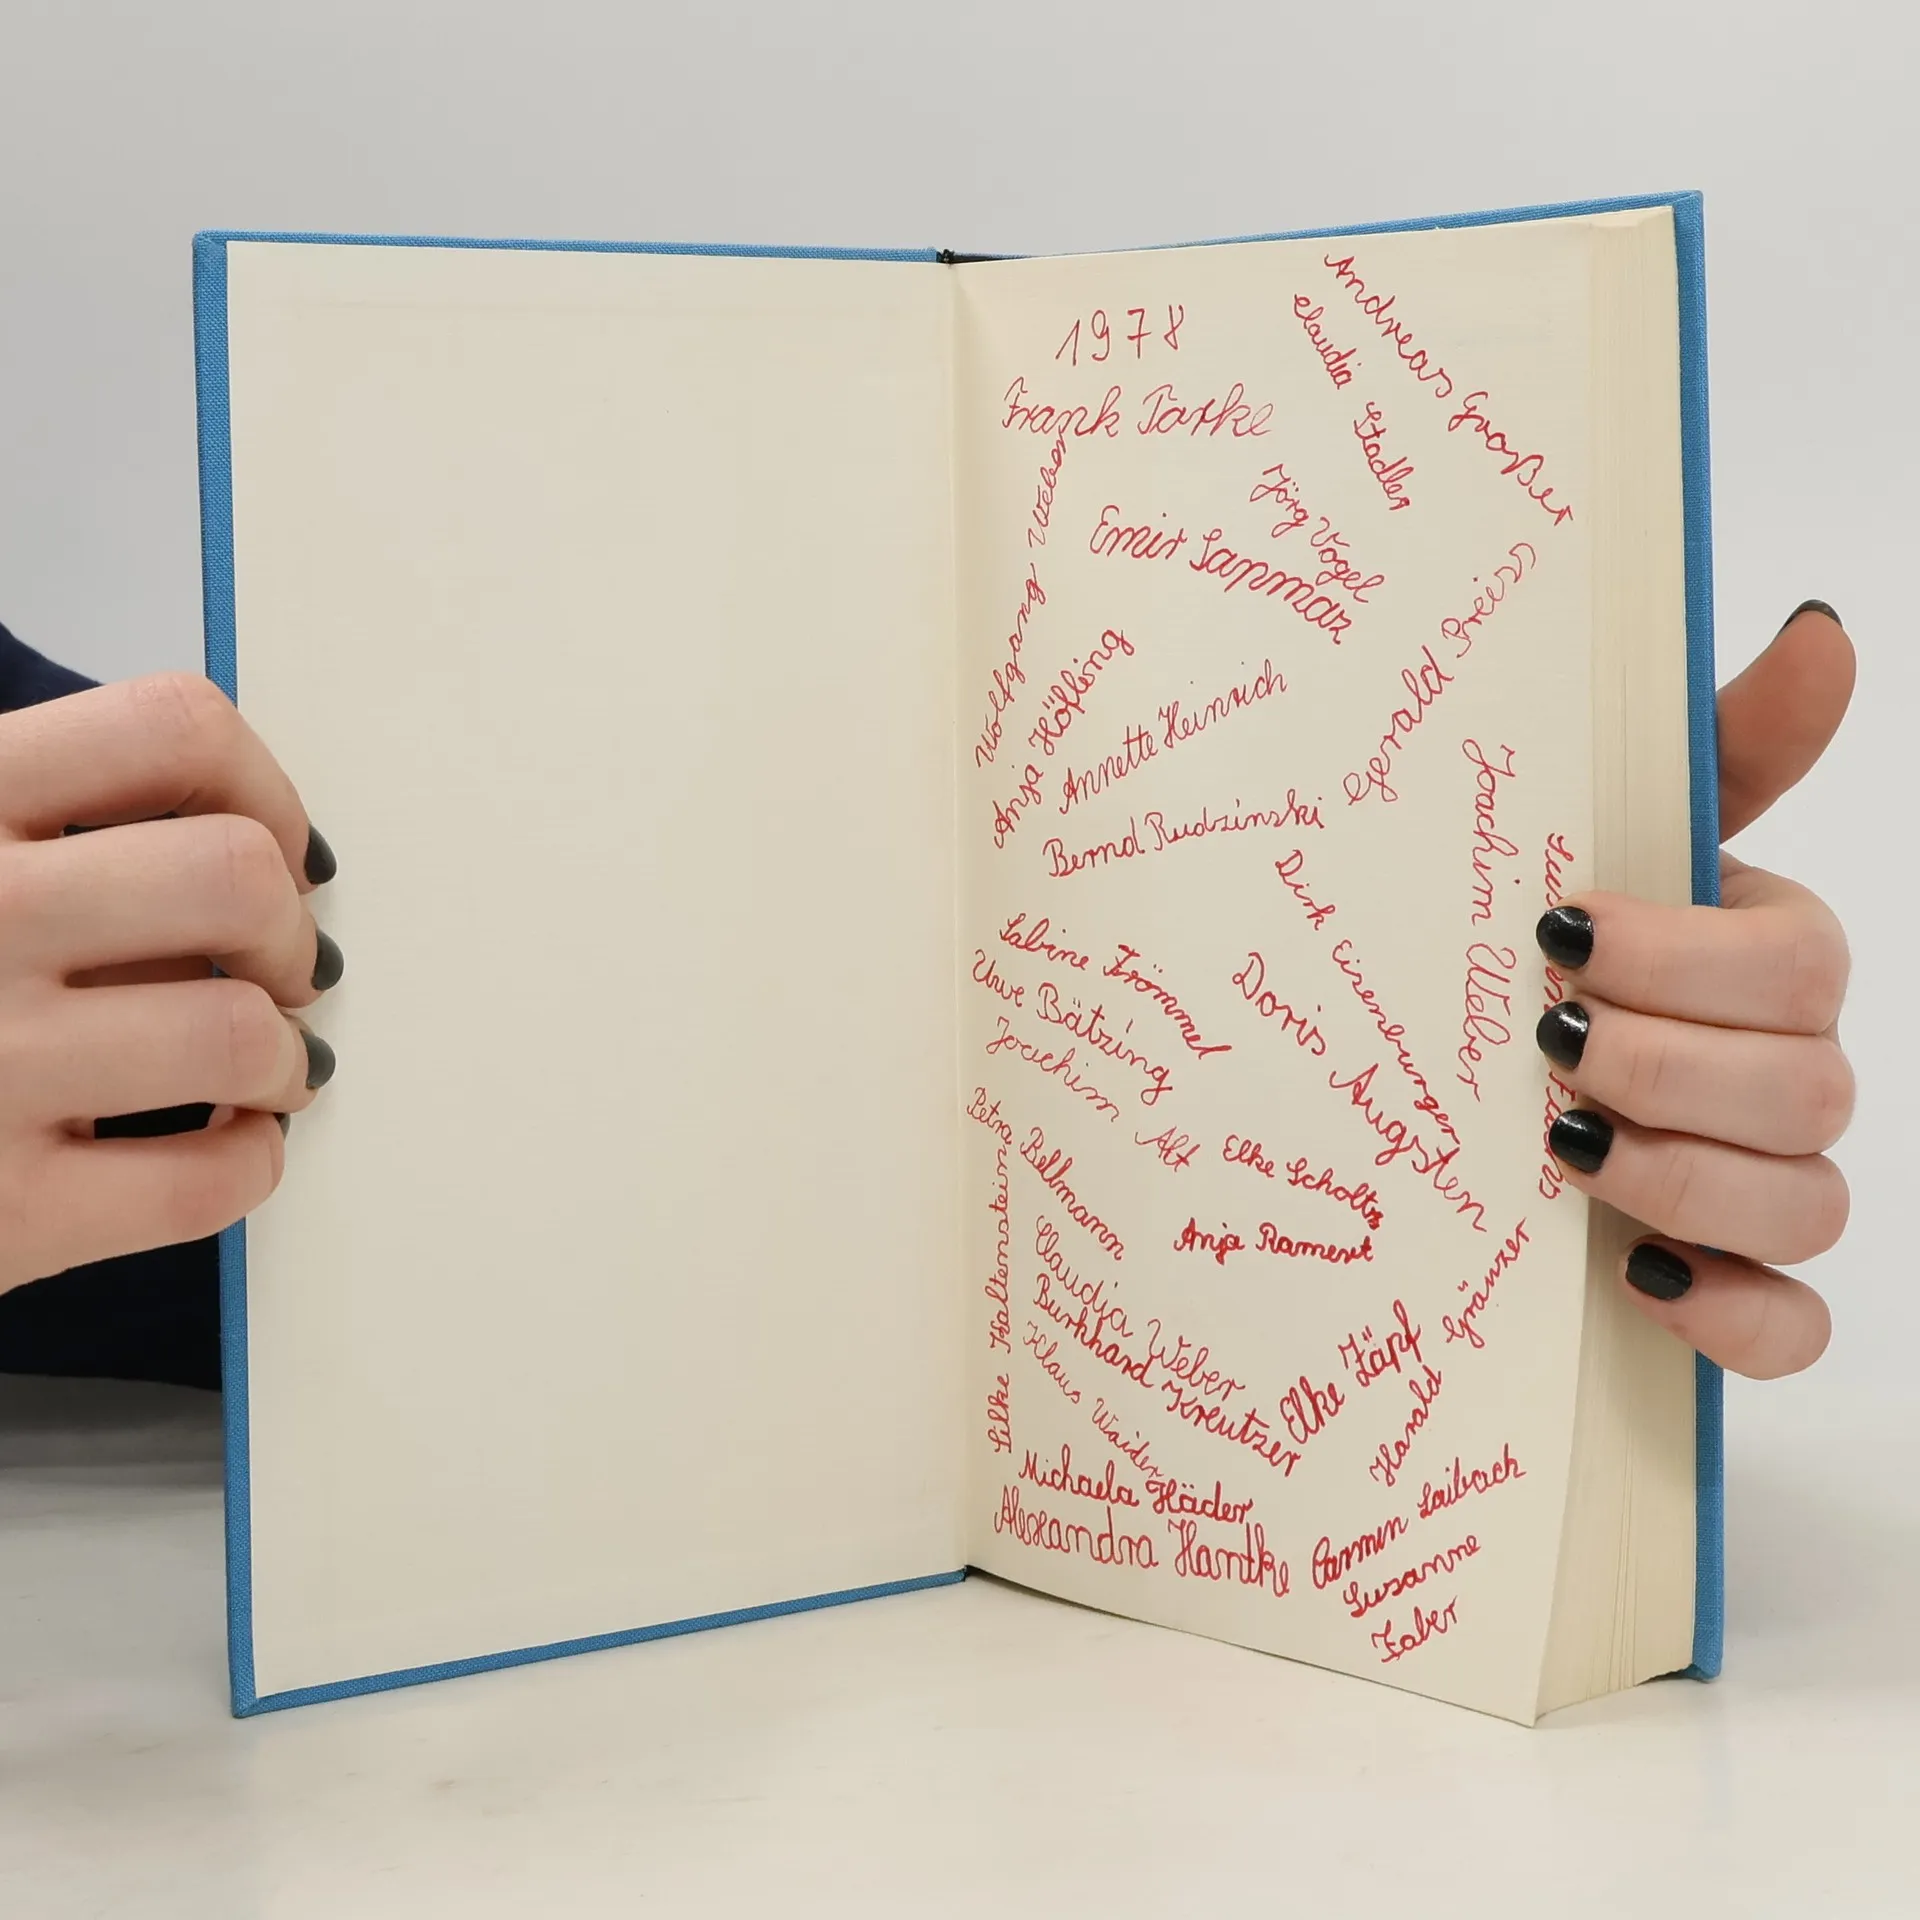 1978
Andreas Großer
Claudia Stadler
Frank Tarke
Jörg Vogel
Emir Sapmaz
Wolfgang Weber
Gerald Breier
Anja Höfling
Annette Heinrich
Bernd Rudzinski
Joachim Weber
Dirk Eisenburger
Sabine Frömmel
Uwe Bätzing
Joachim Alt
Doris Augsten
Petra Bellmann
Elke Scholtz
Anja Rament
Silke Kaltenstein
Claudia Weber
Burkhard Kreutzer
Klaus Waider
Elke Zäpf
Harald Gränzer
Michaela Häder
Alexandra Hantke
Carmen Laibach
Susanne
Faber